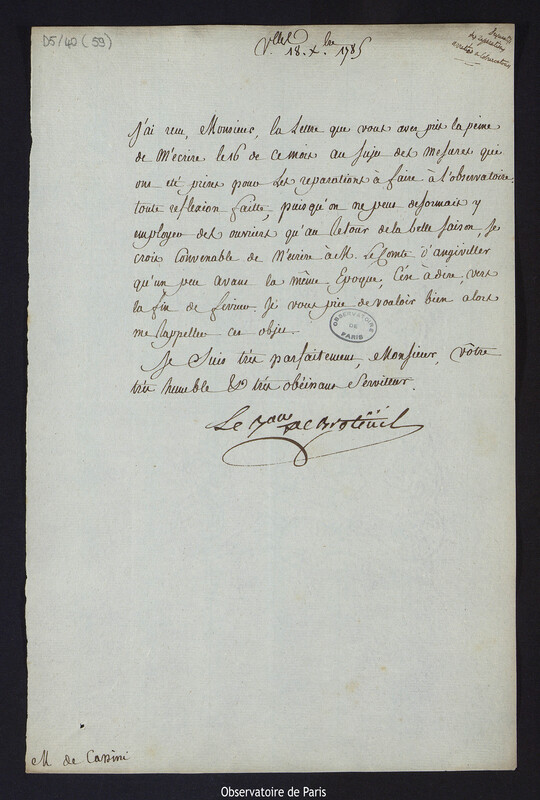 D5/40 (59)
Vlles 18. Xbre 1785
J'ai reçu, Monsieur, la Lettre que vous avez pris la peine
de m'ecrire le 16 de ce mois au sujet des mesures qui
ont été prises pour les reparations à faire à l'observatoire.
toute reflexion faitte, puisqu'on ne peut desormais y
employer des ouvriers qu'au retour de la belle saison, je
crois Convenable de n'écrire à M. Le Comte d'angiviller
qu'un peu avant la même Epoque, C'est à dire, vers
la fin de fevrier. Je vous prie de vouloir bien alors
me rappeller cet objet.
OBSERVATOIRE DE PARIS
Je suis très parfaitement, Monsieur, vôtre
très humble & très obéissant Serviteur.
Le Bon de Breteüil
M de Cassini
Observatoire de Paris